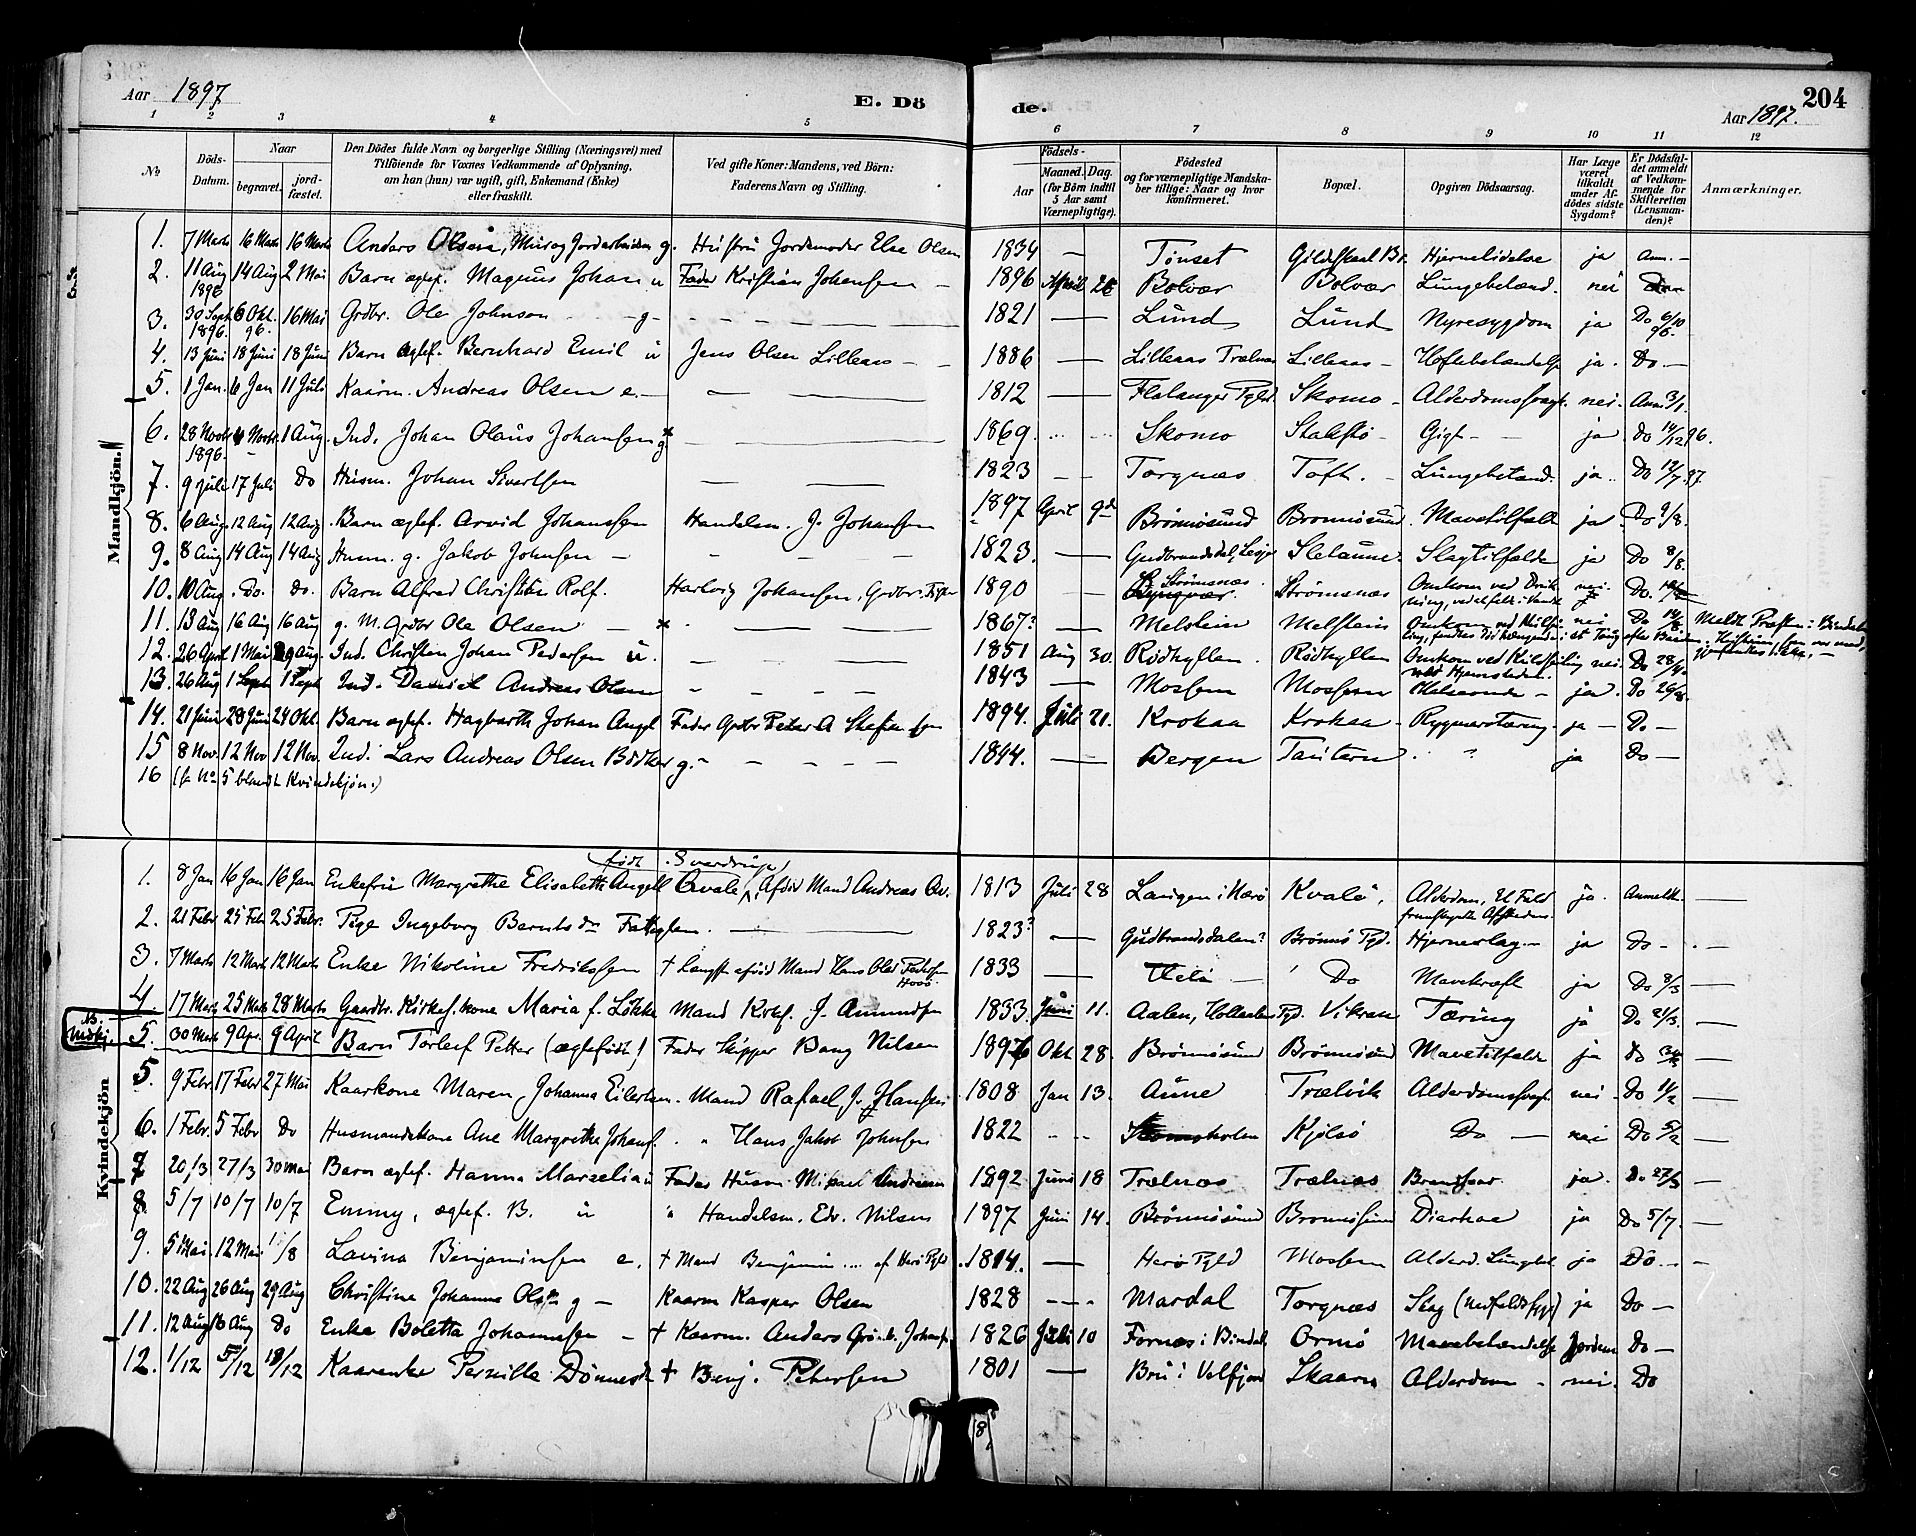 Aar 1897 E. Dö de. Aar 1897. 204
1 2 3 4 5 6 7 8 9 10 11 12
No
Döds-Datum.
Naar
begravet.
jord-fæstet.
Den Dödes fulde Navn og borgerlige Stilling (Næringsvei) med
Tilföiende for Voxnes Vedkommende af Oplysning,
om han (hun) var ugift, gift, Enkemand (Enke)
eller fraskilt.
Ved gifte Koner: Mandens, ved Börn:
Faderens Navn og Stilling.
Födsels-
Aar
Maaned. Dag.
(for Börn indtil
5 Aar samt
Værnepligtige).
Födested
og for værnepligtige Mandska-
ber tillige: Naar og hvor
konfirmeret.
Bopæl.
Opgiven Dödsaarsag.
Har Læge
været
tilkaldt
under Af-
dödes sidste
Sygdom?
Er Dödsfal-
det anmeldt
af Vedkom-
mende for
Skifteretten
(Lensman-
den)?
Anmærkninger.
Mandkjön.
1. 7 Marts 16 Marts 16 Marts Anders Olsen, Mur og Jordarbeider g. Hustru Jordemoder Else Olsen 1834 — Tönset Gildskaal Hjernelidelse ja Anm. —
2. 11 Aug 1896 14 Aug 2 Mai Barn ægtef. Magnus Johan u Fader Kristian Johansen — 1896 April Bolvær Bolvær Lungebetænd. nei
3. 30 Sept 1896. 6 Okt. 96. 16 Mai Grdbr. Ole Johnson g — 1821 — Lund Lund Nyresygdom ja Do 6/10 96.
4. 13 Juni 18 Juni 18 Juni Barn ægtef. Bernhard Emil u Jens Olsen Lilleaas — 1886 — Lilleaas Trælnæs Lilleaas — Hoftebetændelse ja. Do. —
5. 1 Jan. 6 Jan 11 Juli Kaarm. Andreas Olsen e. — 1812 — Flatanger Pgld Skomo — Alderdomssvagh. nei. Anm. 3/1.
6. 28 Novbr 1896. Novbr. 1 Aug. Ind. Johan Olaus Johansen g — 1869. Skomo Stokstö — Gigt — ja. Do 14/12 96.
7. 9 Juli 17 Juli Do Husm. Johan Sivertsen — 1823 — Torgnæs Toft. — Lungebetænd. ja. Do 12/7 97
8. 6 Aug. 12 Aug 12 Aug Barn ægtef. Arvid Johanssen Handelsm. J. Johansen 1897 April 9de Brönnösund Brönnösund. Mavetilfælde ja. Do 9/8.
9. 8 Aug 14 Aug 14 Aug Husm. g. Jakob Johnsen — 1823. — Gudbrandsdal, Lesje Sletaune Slagtilfælde ja Do 8/8.
10. 10 Aug. Do. do. Barn Alfred Christian Rolf. Hartvig Johansen, Grdbr. Fisker 1890 — Strömsnæs. Strömsnæs Omkom ved Drukning, ved at falde i Vandet nei. Do.
11. 13 Aug 16 Aug 16 Aug g. M. Grdbr Ole Olsen — 1867? — Melstein Melstein Omkom ved Kulseiling, nei Do 14/8
12. 26 April 1 Mai 29 Aug. Ind. Christen Johan Pedersen u. — 1851 Aug 30. Rödhyllen. Rödhyllen Omkom ved Kulseiling ved Hjemstedet. nei. Do 28/4.
13. 26 Aug 1 Sept 1 Sept Ind. Daniel Andreas Olsen — 1843 — Mossem Mossem Halsonde — ja. Do 26/8.
14. 21 Juni 28 Juni 24 Okt. Barn ægtef. Hagbarth Johan Angel Fader Grdbr Peter A Stefansen 1894. Juli 21. Krokaa Krokaa — Rygmarvtæring — ja — Do —
15 8 Nov. 12 Nov 12 Nov. Ind. Lars Andreas Olsen Bödker g. — 1844. — Bergen Tautern ? ja Do —
16 (fr No 5 blandt Kvindekjön.)
Kvindekjön
1. 8 Jan 16 Jan 16 Jan Enkefru Margrethe Elisabeth Angell Qvale, født Sverdrup, Afdöd Mand Andreas Qv. 1813 Juli 28 Laugen i Nærö Kvalö, Alderdom, Et Fald fremskyndte Afskeden ja. Anmeldt. —
2. 21 Febr 25 Febr 25 Febr. Pige Ingeborg Berntsdr Fattiglem. — 1823? — Gudbrandsdalen? Brönnö Pgd. Hjerneslag — ja Do — . —
3. 7 Marts 12 Marts 12 Marts Enke Nikoline Fredriksen † Mand Hans Olai Pedersen 1833 — Do Mavekræft ja Do 8/3 —
4. 17 Marts 25 Marts 28 Marts Gaardbr. Kirkes. kone Maria f. Lökke Mand Kirkes. J. Amundsen 1833. Juni 11. Aalen, Holtaalen Pgd. Vikran Tæring ja Do 21/3. —
NB. Mndkj. 5. 30 Marts 9 Apr. 9 April Barn Torleif Petter (ægtefödt) Fader Skipper Bang Nilsen 1896 Okt 28. Brönnösund Brönnösund Mavetilfælde ja Do —
5. 9 Febr. 17 Febr 27 Mai Kaarkone Maren Johanna Eilertsen. Mand Rafael J. Hansen 1808 Jan 13. Aune Trælvik Alderdomssvagh. nei. Do 11/2 —
6. 1 Febr. 5 Febr Do Husmandskone Ane Margrethe Johans. " Hans Jakob Johnsen 1822 Kjölsö Do — nei Do 5/2 —
7 20/3 27/3 30 Mai Barn ægtef. Hanna Marselia u Fader Husm. Mikael Andreassen 1892 Juni 18 Trælnæs Trælnæs Brandsaar ja. Do 27/3 —
8. 5/7 10/7 10/7 Emmy, ægtef. B. u " Handelsm. Edv. Nilsen 1897 Juni 14. Brönnösund Brönnösund Diarhæ ja Do 5/7. —
9. 5 Mai 12 Mai /8 Lavina Benjaminsen e. † Mand Benjamin ... af Herö Pgld 1814. — Herö Pgld Mossem Alderd. Lungbet. ja Do. — —
10. 22 Aug 26 Aug 29 Aug Christine Johanna Olsen g — Kaarm Kasper Olsen 1828 — Mardal Torgnæs Slag ja Do —
11. 12 Aug 16 Aug Do Enke Boletta Johannesen — † Kaarm. Anders Grönb. Johans. 1826 Juli 10 Fornæs i Bindal Ormö Mavebetændelse Jordem Do —
12. 1/12 5/12 18/12 Kaarenke Pernille Dönnesdtr † Benj. Petersen 1801 — Bru i Velfjord Skaarn Alderdom — nei. Do